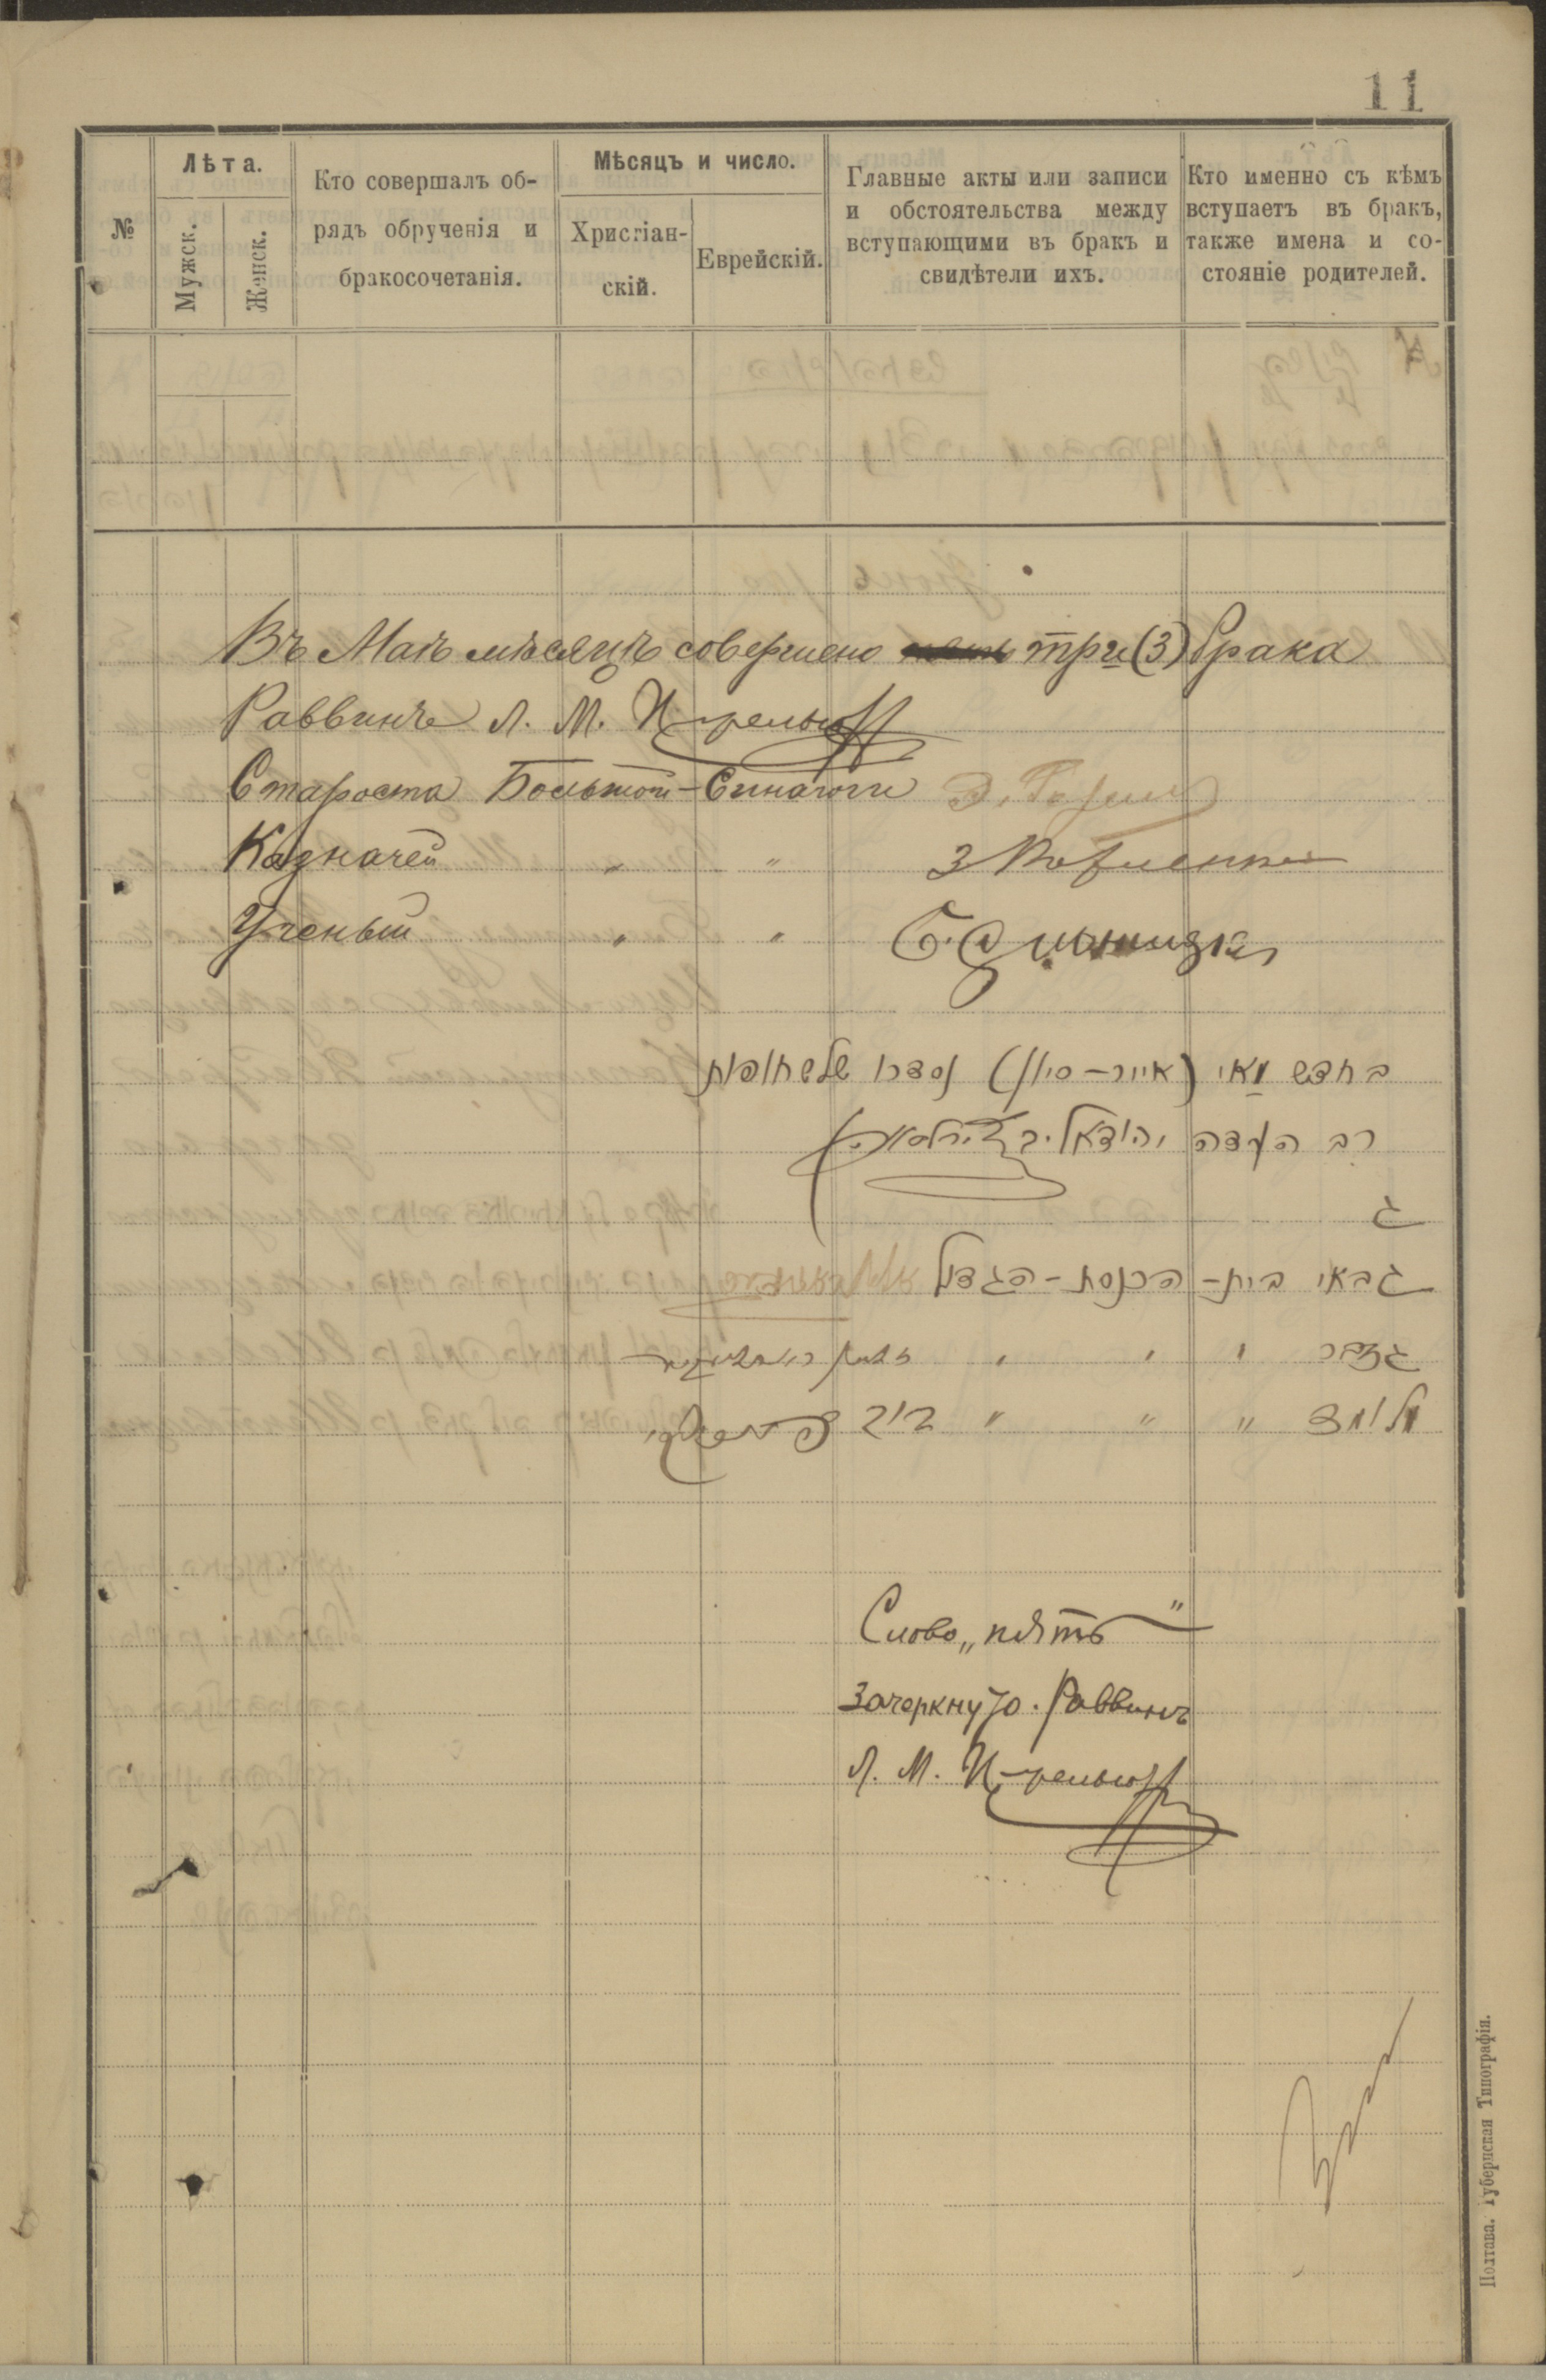 11
№
Лѣта.
Мужск.
Женск.
Кто совершалъ об-
рядъ обрученія и
бракосочетанія.
Мѣсяцъ и число.
Христіан-
скій.
Еврейскій.
Главные акты или записи
и обстоятельства между
вступающими въ бракъ и
свидѣтели ихъ.
Кто именно съ кѣмъ
вступаетъ въ бракъ,
также имена и со-
стояніе родителей.
Въ Маѣ мѣсяцѣ совершено три (3) брака
Раввинъ Л. М. Цирельсонъ
Староста Большой-Синагоги
Казначей " "
Ученый " "
בחדש מאי (אייר-סיון) נסדרו שלש חופות
רב העדה יהודא ליב צירלסאהן
ג
גבאי בית-הכנסת-הגדול
גזבר " " "
מלומד " " " דוב
Слово „пять"
зачеркнуто. Раввинъ
Л. М. Цирельсонъ
Полтава. Губернская Типографія.